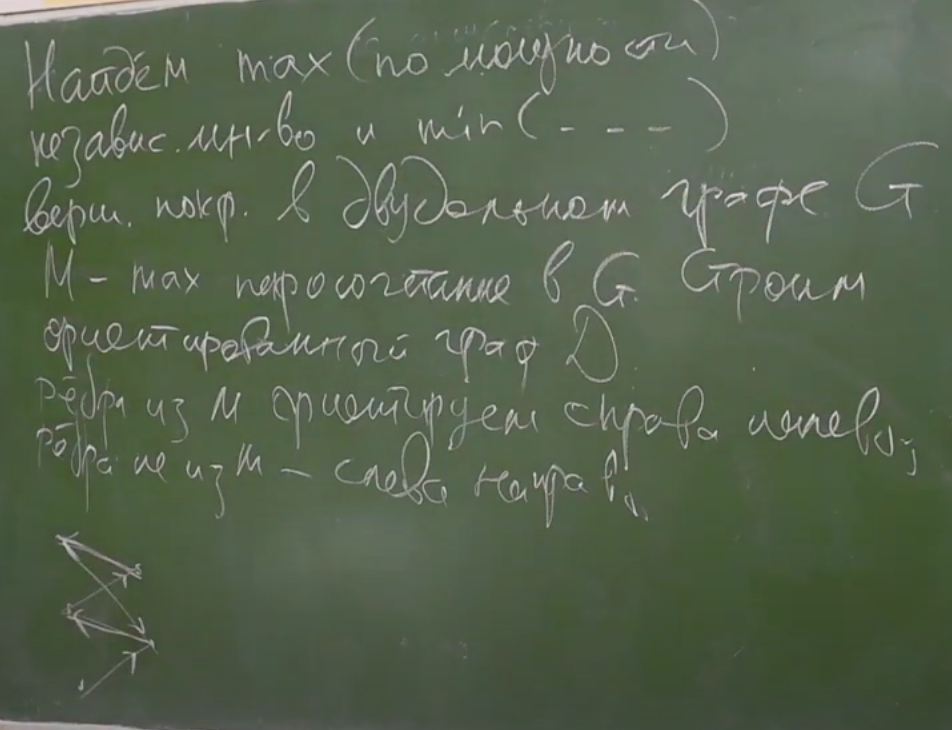 Найдём max (по мощности)
независ. мн-во и min (- - - )
верш. покр. в двудольном графе G
M - max паросочетание в G. Строим
ориентированный граф D
рёбра из M ориентируем справа налево,
рёбра не из M - слева направо